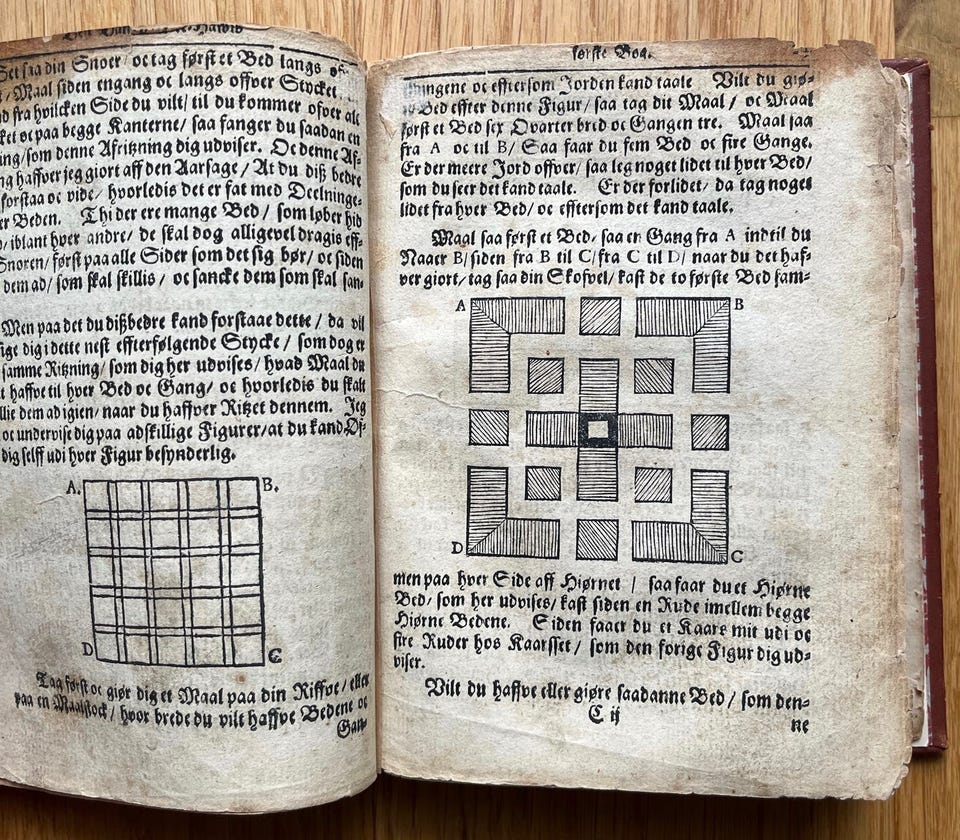 Set saa din Snoer/ oc tag først et Bed langs
/ Maal siden engang oc langs offver Stycket
fra hvilcken Side du vilt/ til du kommer ofver alt
ket oc paa begge Kanterne/ saa fanger du saadan en
ning/ som denne Afritzning dig udviser. Oc denne Af-
ng haffver jeg giort aff den Aarsage/ At du diß bedre
forstaa oc vide/ hvorledis det er fat med Deelninge-
er Beden. Thi der ere mange Bed/ som løber hid
/ iblant hver andre/ de skal dog alligevel dragis eff-
Snoren/ først paa alle Sider som det sig bør/ oc siden
dem ad/ som skal skillis/ oc sancke dem som skal san-
Men paa det du dißbedre kand forstaae dette/ da vil
ige dig i dette nest effterfølgende Stycke/ som dog er
samme Ritzning/ som dig her udvises/ hvad Maal du
t haffve til hver Bed oc Gang/ oc hvorledis du skalt
llie dem ad igien/ naar du haffver Ritzet dennem. Jeg
oc undervise dig paa adskillige Figurer/ at du kand
dig selff udi hver Figur besynderlig.
A. B.
D C
Tag først oc giør dig et Maal paa din Riffve/ eller
paa en Maalstock/ hvor brede du vilt haffve Bedene oc
Gan-
første Bog.
ningene oc effter som Jorden kand taale Vilt du giø-
Bed effter denne Figur/ saa tag dit Maal/ oc Maal
først et Bed sex Qvarter bred oc Gangen tre. Maal saa
fra A oc til B/ Saa faar du fem Bed oc fire Gange.
Er der meere Jord offver/ saa leg noget lidet til hver Bed/
som du seer det kand taale. Er der forlidet/ da tag noget
lidet fra hver Bed/ oc effter som det kand taale.
Maal saa først et Bed/ saa en Gang fra A ind til du
Naaer B/ siden fra B til C/ fra C til D/ naar du det haf-
ver giort/ tag saa din Skofvel/ kast de to første Bed sam-
A B
D C
men paa hver Side aff Hiørnet/ saa faar du et Hiørne
Bed/ som her udvises/ kast siden en Rude imellem begge
Hiørne Bedene. Siden faaer du et Kaars mit udi oc
fire Ruder hos Kaarsset/ som den forige Figur dig ud-
viser.
Vilt du haffve eller giøre saadanne Bed/ som den-
C ij
ne